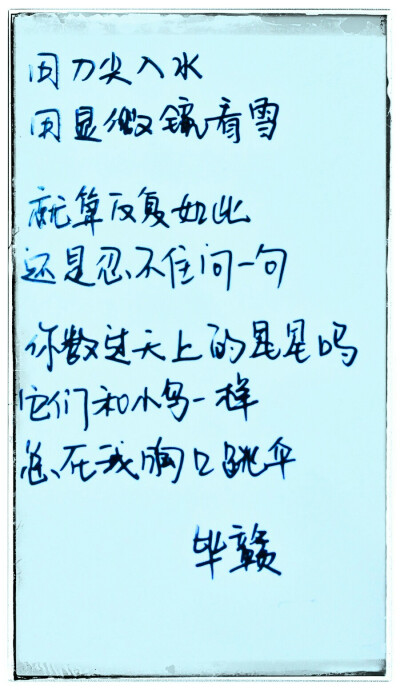 用刀尖入水
用显微镜看雪
就算反复如此
还是忍不住问一句
你数过天上的星星吗
它们和小鸟一样
总在我胸口跳伞
毕赣